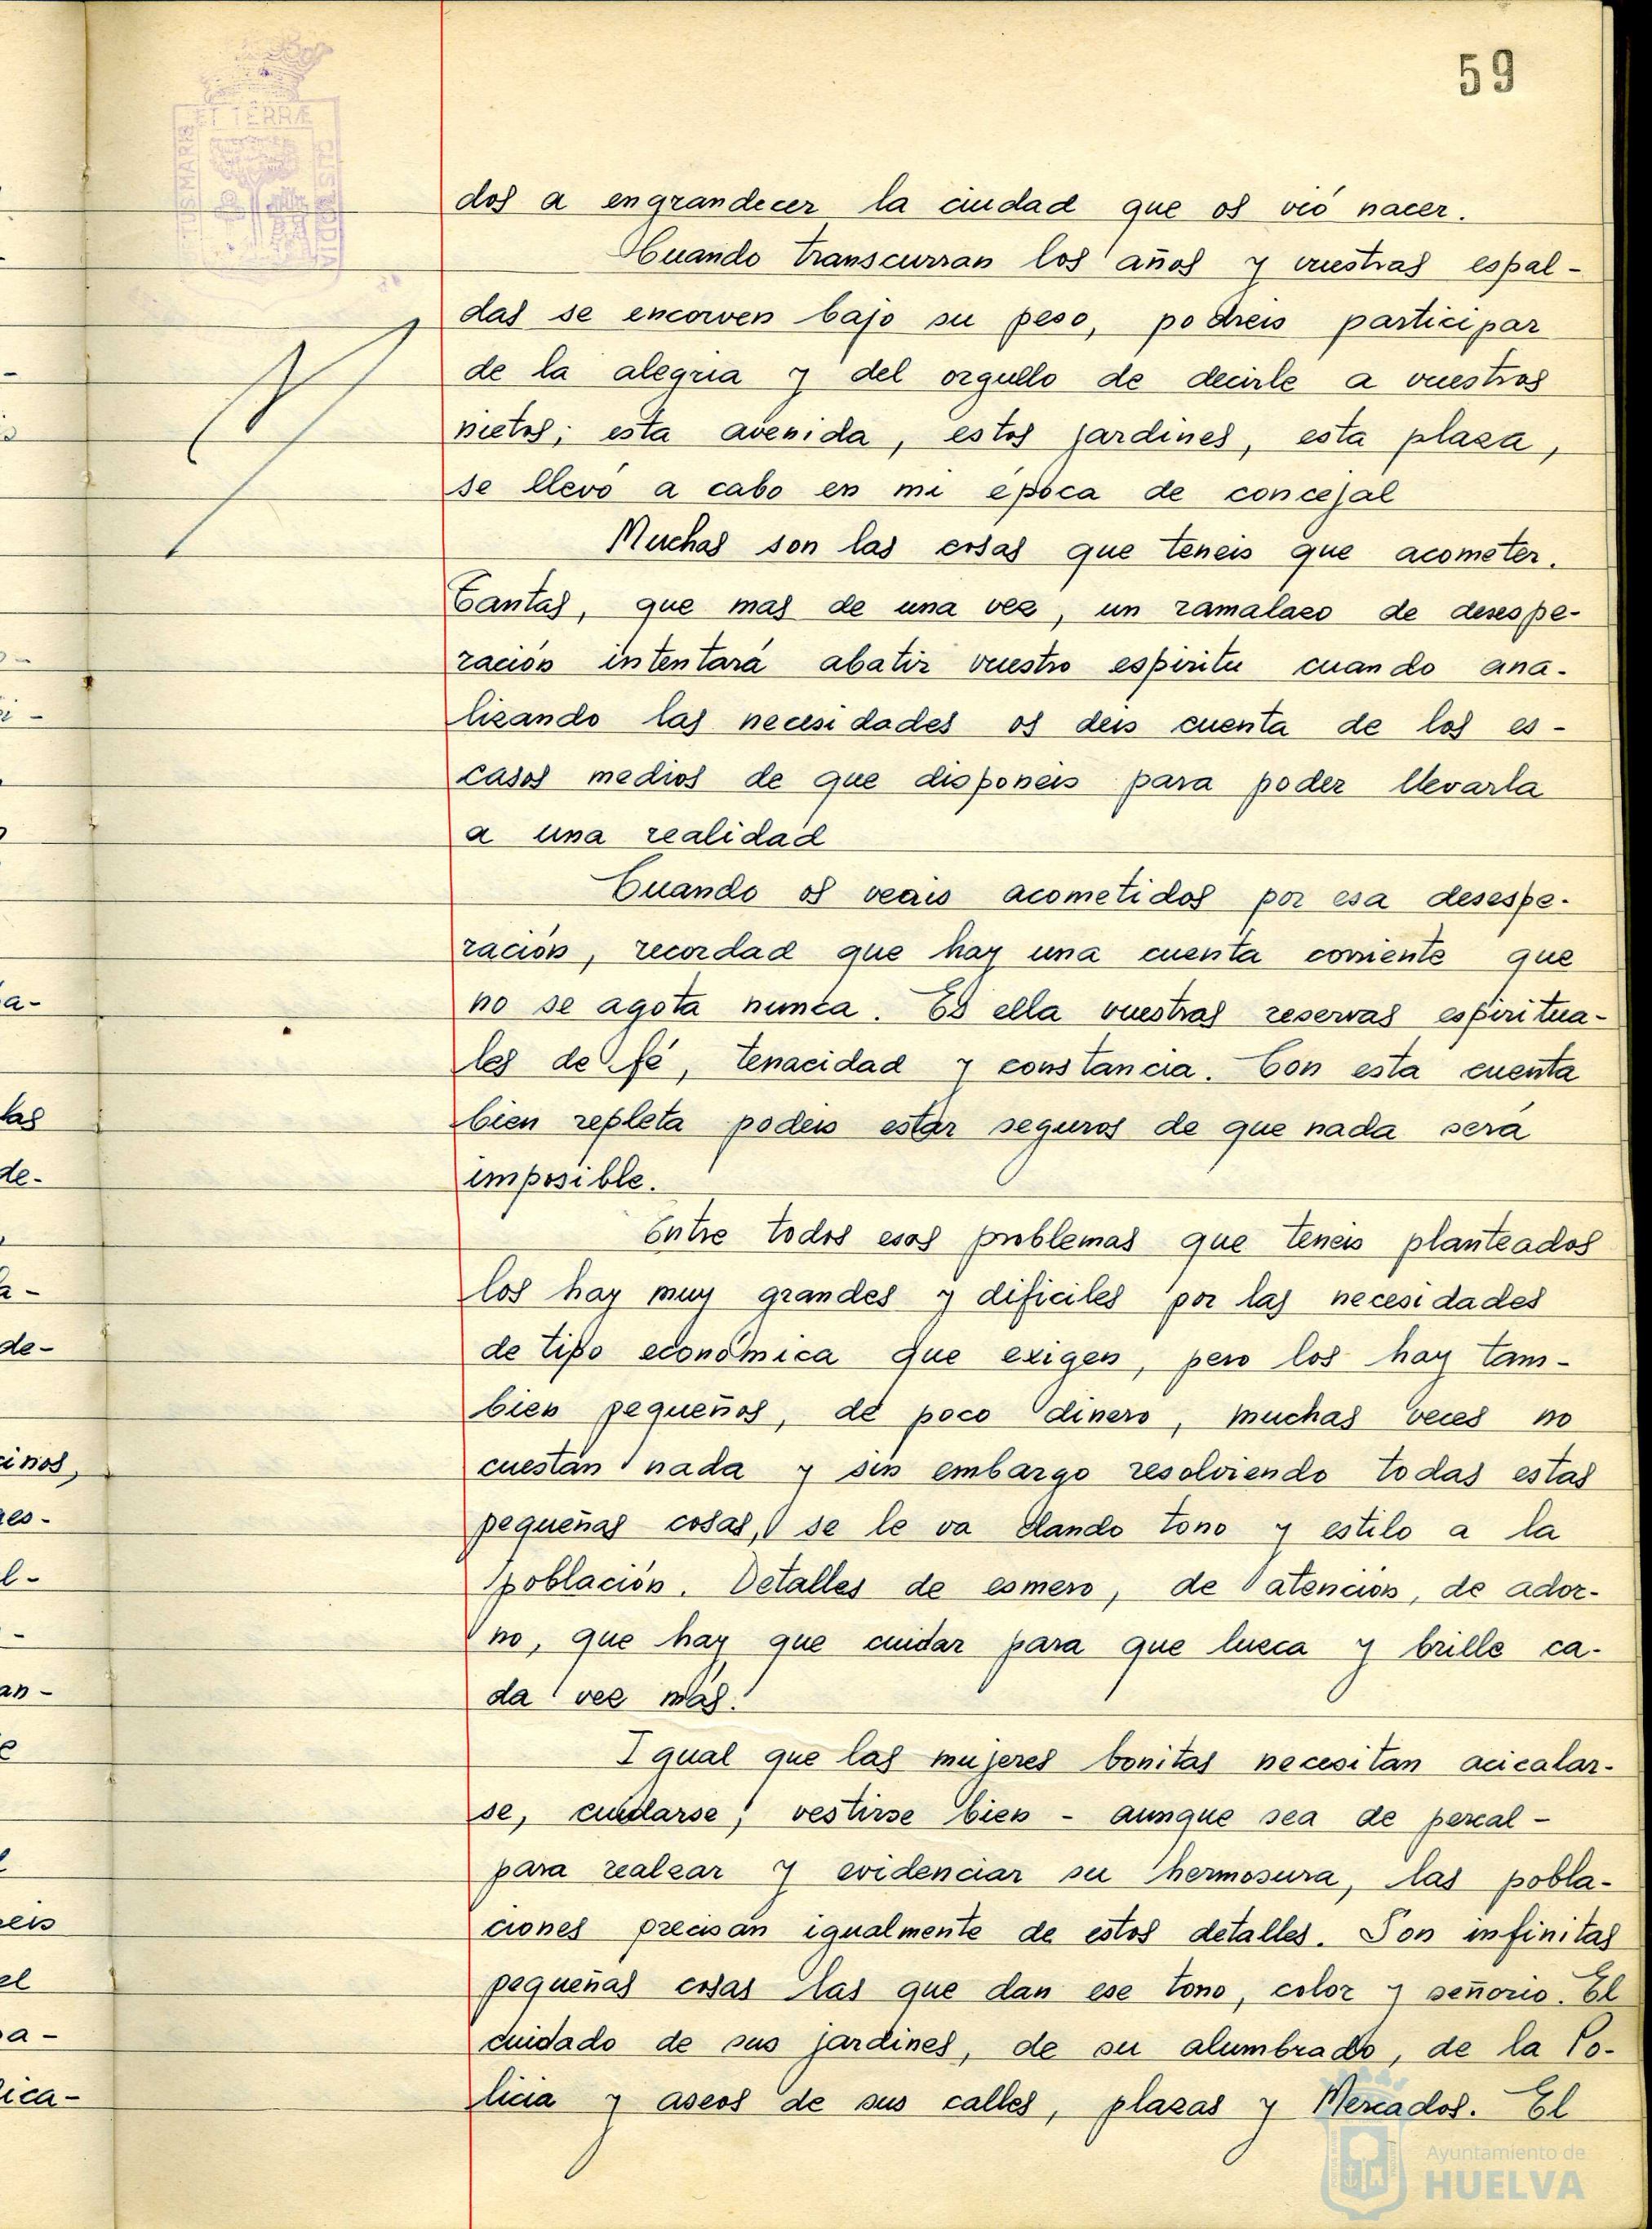 59
ET TERRÆ
dos a engrandecer la ciudad que os vió nacer.
Cuando transcurran los años y vuestras espal-
das se encorven bajo su peso, podreis participar
de la alegria y del orgullo de decirle a vuestros
nietos; esta avenida, estos jardines, esta plaza,
se llevó a cabo en mi época de concejal
Muchas son las cosas que teneis que acometer.
Tantas, que mas de una vez, un ramalazo de desespe-
ración intentará abatir vuestro espiritu cuando ana-
lizando las necesidades os deis cuenta de los es-
casos medios de que disponeis para poder llevarla
a una realidad
Cuando os veais acometidos por esa desespe-
ración, recordad que hay una cuenta corriente que
no se agota nunca. Es ella vuestras reservas espiritua-
les de fé, tenacidad y constancia. Con esta cuenta
bien repleta podeis estar seguros de que nada será
imposible.
Entre todos esos problemas que teneis planteados
los hay muy grandes y dificiles por las necesidades
de tipo económica que exigen, pero los hay tam-
bien pequeños, de poco dinero, muchas veces no
cuestan nada y sin embargo resolviendo todas estas
pequeñas cosas, se le va dando tono y estilo a la
población. Detalles de esmero, de atención, de ador-
no, que hay que cuidar para que luzca y brille ca-
da vez más.
Igual que las mujeres bonitas necesitan acicalar-
se, cuidarse, vestirse bien - aunque sea de percal -
para realzar y evidenciar su hermosura, las pobla-
ciones precisan igualmente de estos detalles. Son infinitas
pequeñas cosas las que dan ese tono, color y señorio. El
cuidado de sus jardines, de su alumbrado, de la Po-
licia y aseos de sus calles, plazas y Mercados. El
Ayuntamiento de
HUELVA